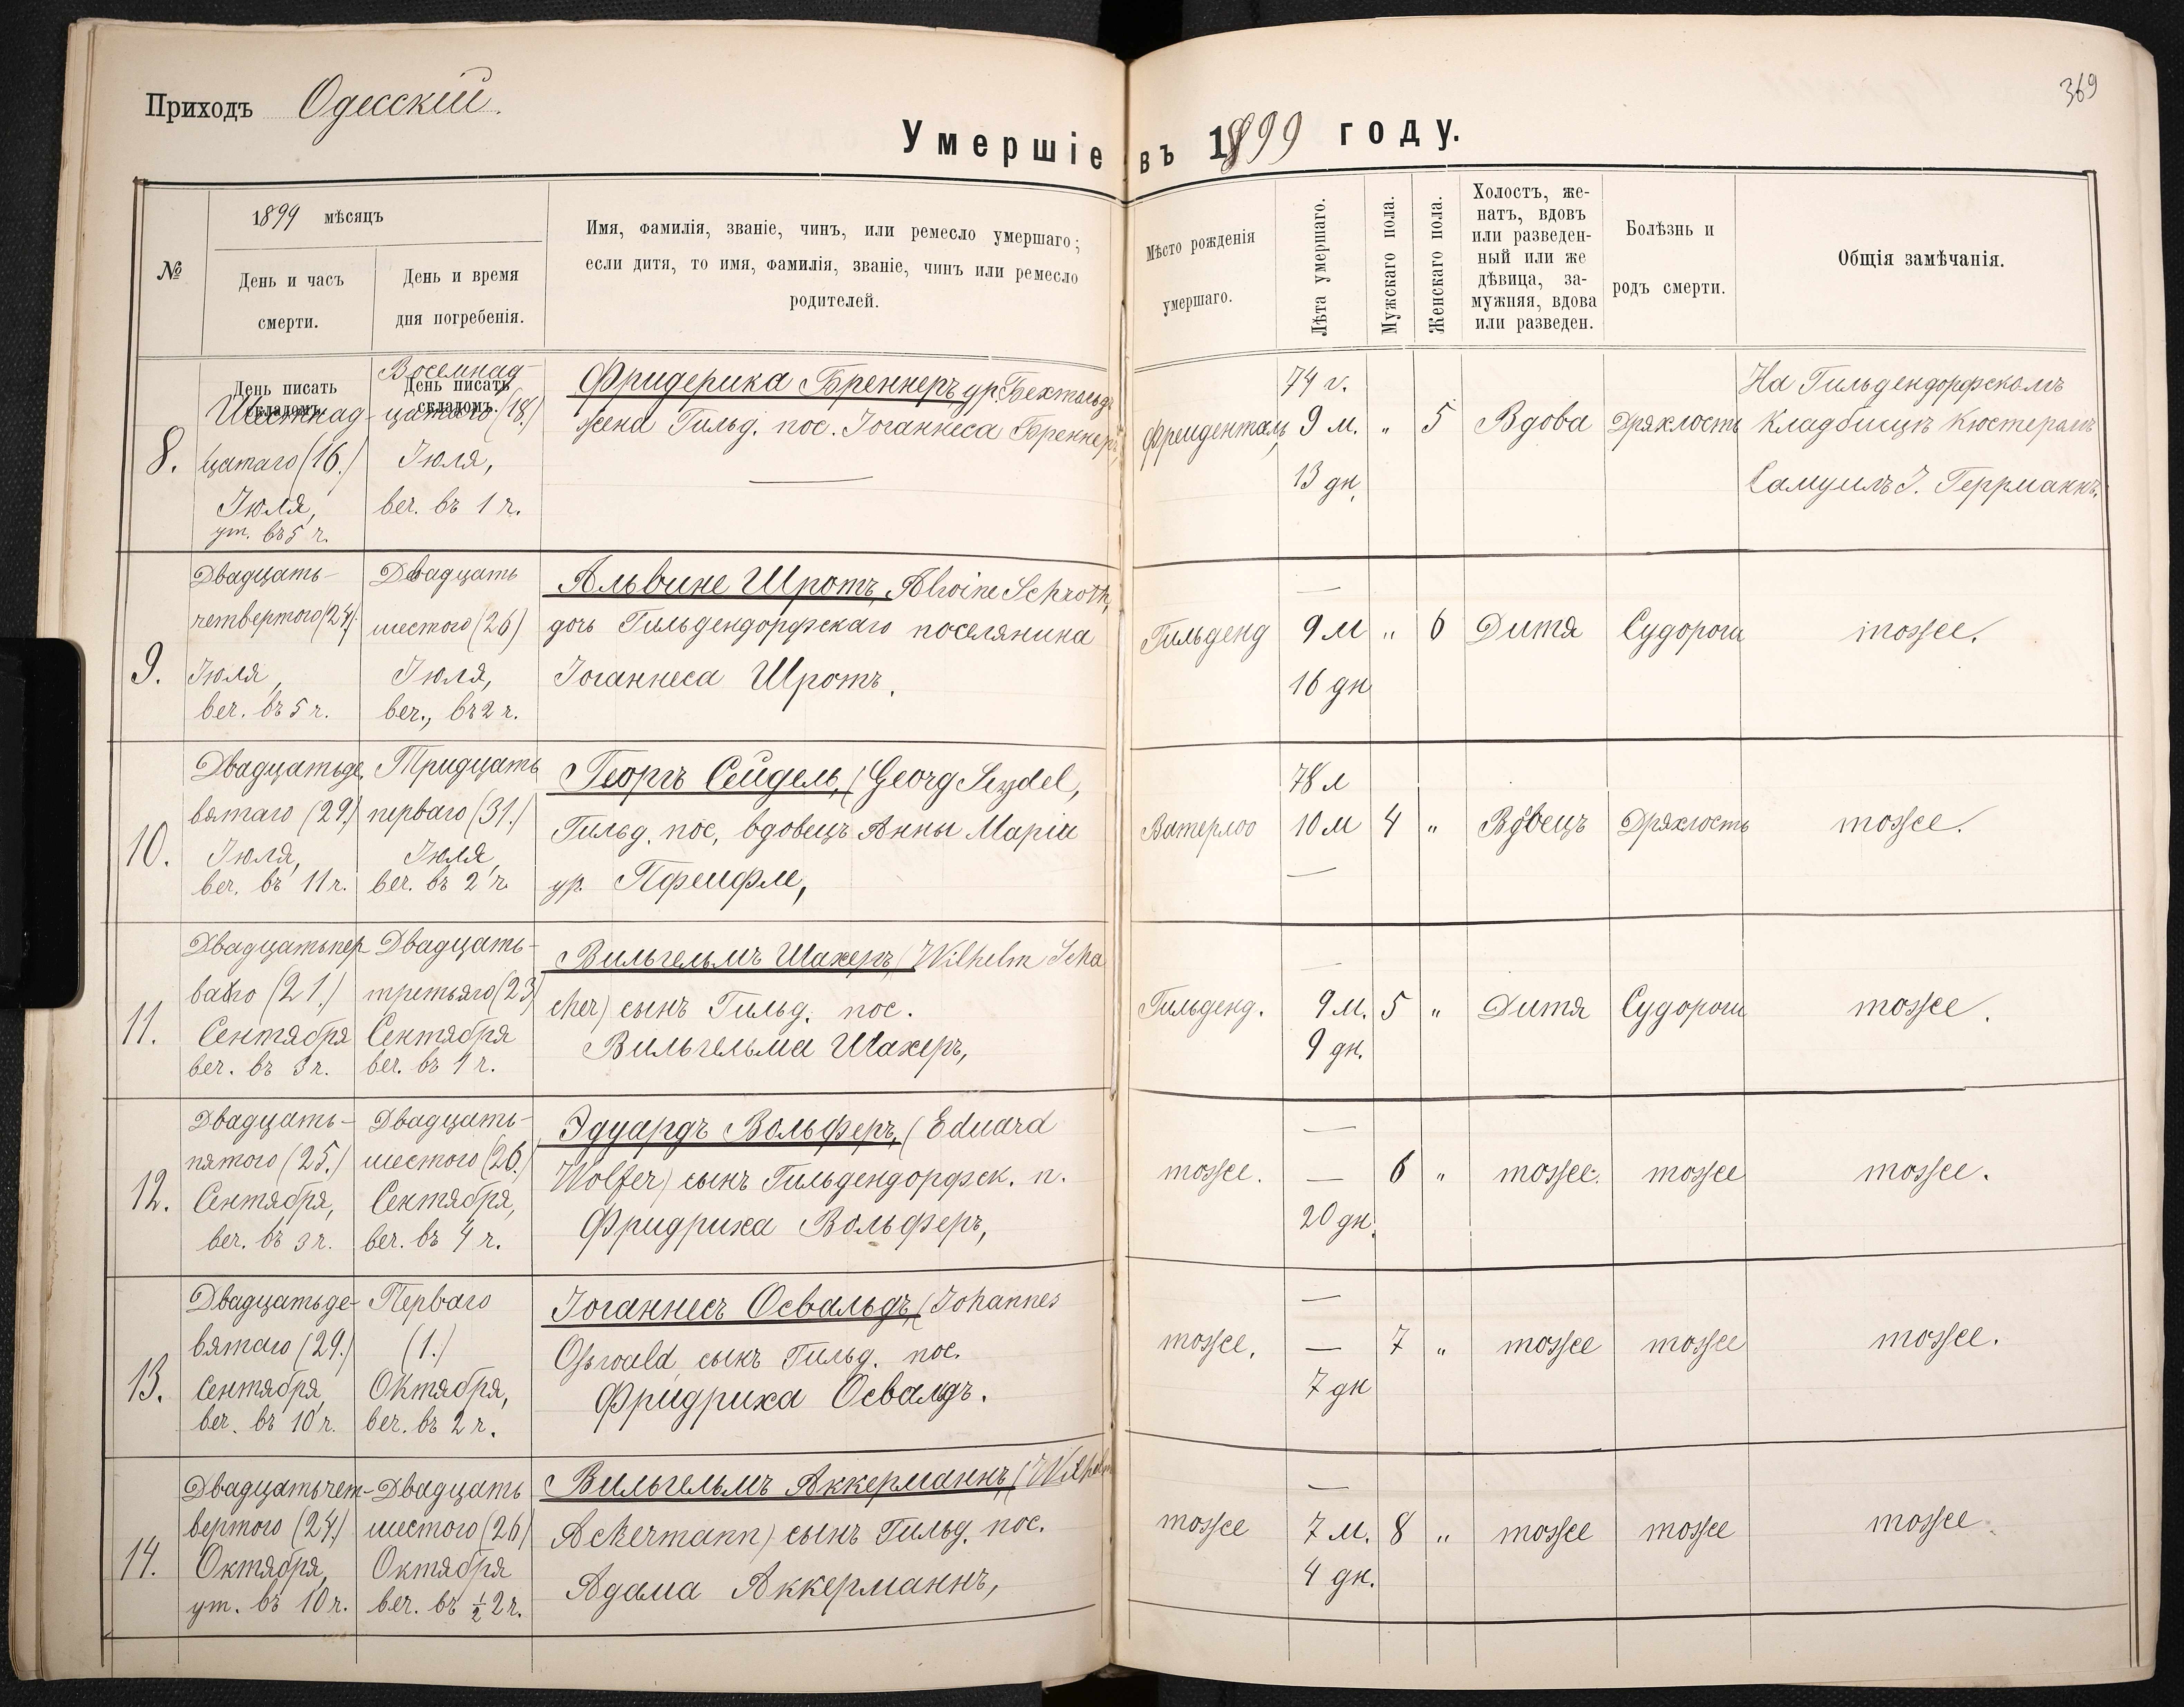 Приходъ Одесскій.
369
Умершіе въ 1899 году.
№
1899 мѣсяцъ
День и часъ
смерти.
День и время
дня погребенія.
Имя, фамилія, званіе, чинъ, или ремесло умершаго;
если дитя, то имя, фамилія, званіе, чинъ или ремесло
родителей.
Мѣсто рожденія
умершаго.
Лѣта умершаго.
Мужскаго пола.
Женскаго пола.
Холостъ, же-
натъ, вдовъ
или разведен-
ный или же
дѣвица, за-
мужняя, вдова
или разведен.
Болѣзнь и
родъ смерти.
Общія замѣчанія.
День писать
складомъ.
День писать
складомъ.
8.
Шестнад-
цатаго (16.)
Іюля,
ут. въ 5 ч.
Восемнад-
цатаго (18.)
Іюля,
веч. въ 1 ч.
Фридерика Бреннеръ ур. Бехтольдъ
жена Гильд. пос. Іоганнеса Бреннеръ,
Фрейденталь,
74 г.
9 м.
13 дн.
„
5
Вдова
Дряхлость
На Гильдендорфскомъ
кладбищѣ Кюстеромъ
Самуилъ І. Геррманнъ.
9.
Двадцать-
четвертого (24).
Іюля,
веч. въ 5 ч.
Двадцать
шестого (26)
Іюля,
веч., въ 2 ч.
Альвине Шротъ, Alwine Schroth,
дочь Гильдендорфскаго поселянина
Іоганнеса Шротъ.
Гильденд
—
9 м
16 дн
„
6
Дитя
Судороги
тоже.
10.
Двадцатьде,
вятаго (29.)
Іюля,
веч. въ 11 ч.
Тридцать
перваго (31.)
Іюля,
веч. въ 2 ч.
Георгъ Сейдель, (Georg Seydel,
Гильд. пос, вдовецъ Анны Маріи
ур. Пфейфле,
Ватерлоо
78 л
10 м
—
4
„
Вдвецъ
Дряхлость
тоже.
11.
Двадцатьпер-
ваго (21.)
Сентября
веч. въ 3 ч.
Двадцать-
третьяго (23)
Сентября
веч. въ 1 ч.
Вильгельмъ Шахеръ, (Wilhelm Scha
cher) сынъ Гильд. пос.
Вильгельма Шахеръ,
Гильденд.
—
9 м.
9 дн.
5
„
Дитя
Судороги
тоже.
12.
Двадцать-
пятого (25.)
Сентября,
веч. въ 3 ч.
Двадцать-
шестого (26.)
Сентября,
веч. въ 4 ч.
Эдуардъ Вольферъ, (Eduard
Wolfer) сынъ Гильдендорфск. п.
Фридриха Вольферъ,
тоже.
—
—
20 дн.
6
„
тоже.
тоже
тоже.
13.
Двадцатьде-
вятаго (29.)
Сентября,
веч. въ 10 ч.
Перваго
(1.)
Октября,
веч. въ 2 ч.
Іоганнесъ Освальдъ, (Johannes
Oswald сынъ Гильд. пос.
Фридриха Освалдъ.
тоже.
—
—
7 дн
7
„
тоже
тоже
тоже.
14.
Двадцатьчет-
вертого (24.)
Октября,
ут. въ 10 ч.
Двадцать
шестого (26)
Октября
веч. въ ½ 2 ч.
Вильгельмъ Аккерманнъ, (Wilhelm
Ackermann) сынъ Гильд. пос.
Адама Аккерманнъ,
тоже
—
7 м.
4 дн.
8
„
тоже
тоже
тоже